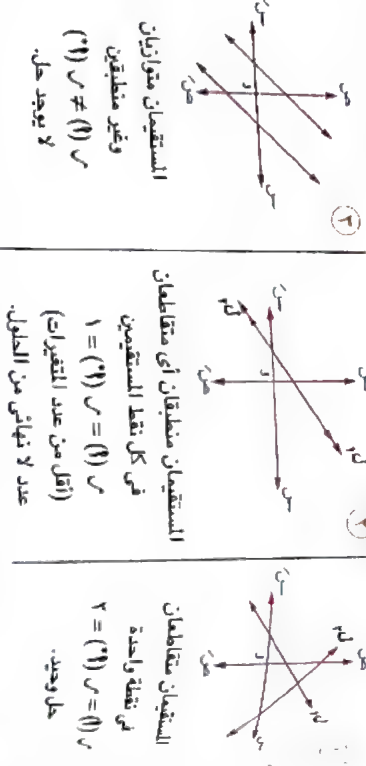 ص
ل٢
س
سَ
و
ل١
صَ
المستقيمان متقاطعان
فى نقطة واحدة
ر (P) = ر (P*) = ٢
حل وحيد.
ص
ل١
س
سَ
و
ل٢
صَ
المستقيمان منطبقان أى متقاطعان
فى كل نقط المستقيمين
ر (P) = ر (P*) = ١
(أقل من عدد المتغيرات)
عدد لا نهائى من الحلول.
٣
ص
س
سَ
و
صَ
المستقيمان متوازيان
وغير منطبقين
ر (P) ≠ ر (P*)
لا يوجد حل.